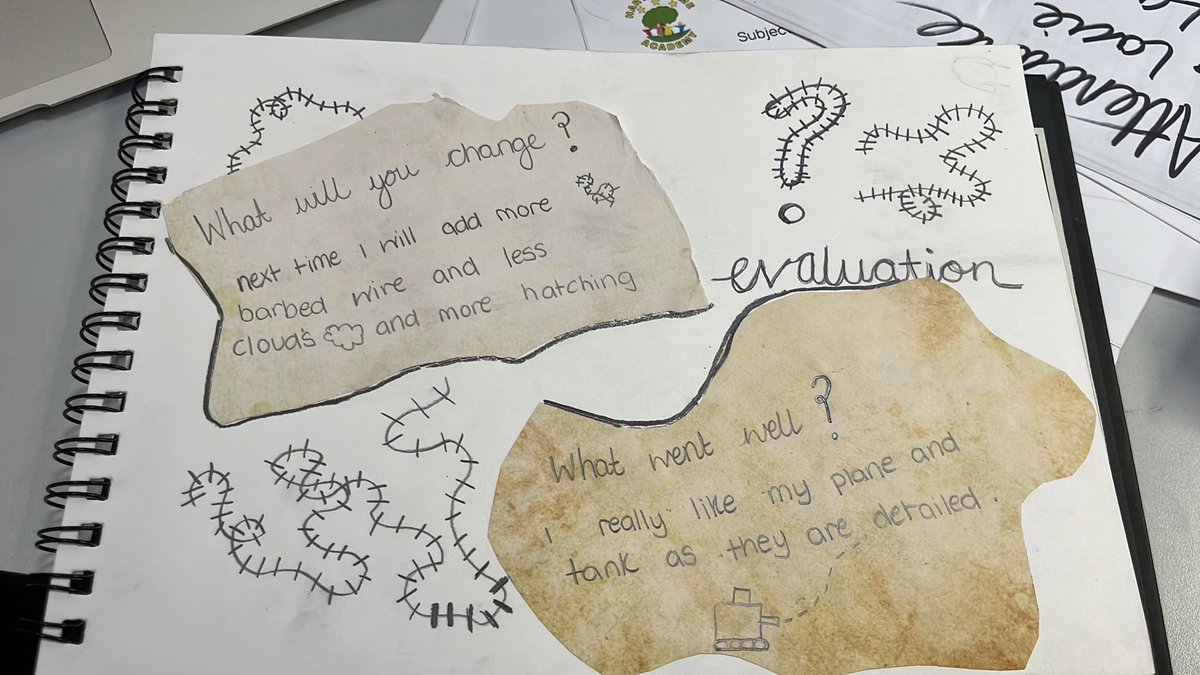 What will you change ?
next time I will add more
barbed wire and less
clouds and more hatching
?
evaluation
What went well ?
I really like my plane and
tank as they are detailed.
ACADEMY
Subjec